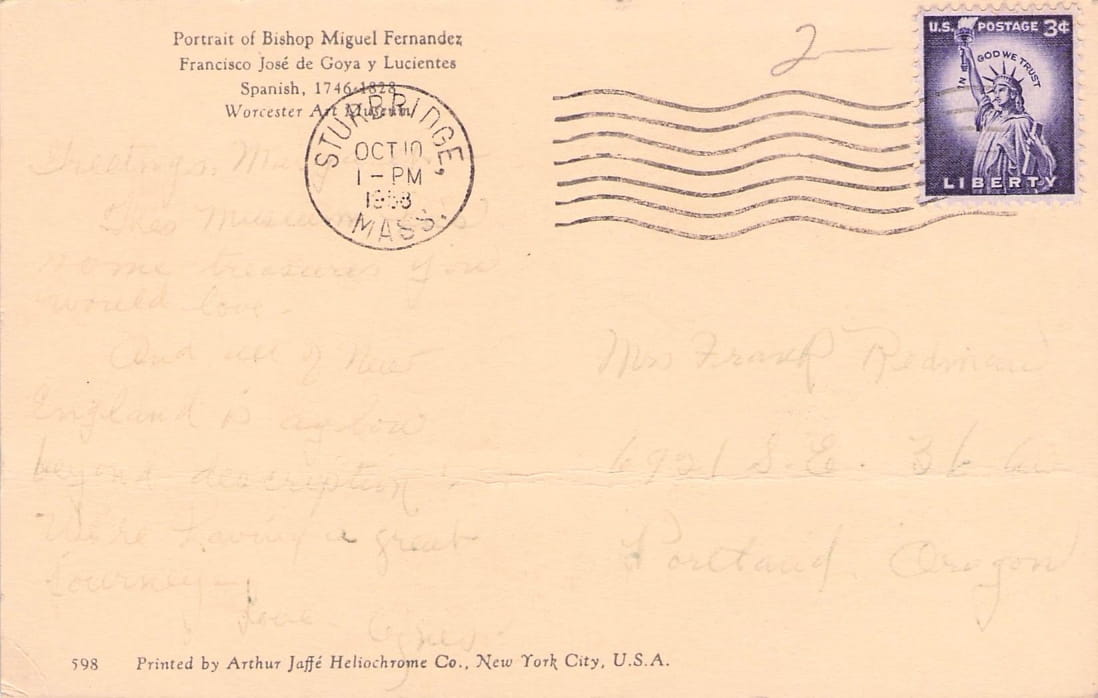 Portrait of Bishop Miguel Fernandez
Francisco José de Goya y Lucientes
Spanish, 1746-1828
Worcester Art Museum
2
U.S. POSTAGE 3¢
IN GOD WE TRUST
LIBERTY
STURBRIDGE,
OCT 10
1-PM
1958
MASS.
Greetings,
This Museum has
some treasures you
would love.
And all of New
England is aglow
beyond description!
We're having a great
journey
Love
Agnes
Mrs Frank Redman
S.E. 36
Portland Oregon
598 Printed by Arthur Jaffé Heliochrome Co., New York City, U.S.A.